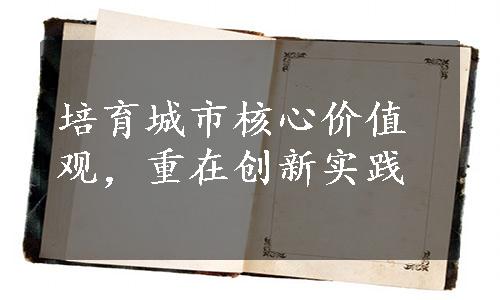 培育城市核心价值
观，重在创新实践